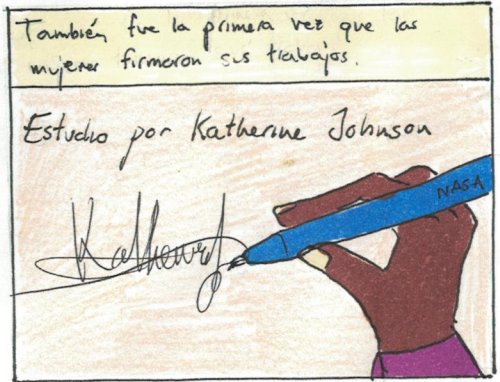 También fue la primera vez que las
mujeres firmaron sus trabajos.
Estudio por Katherine Johnson
NASA